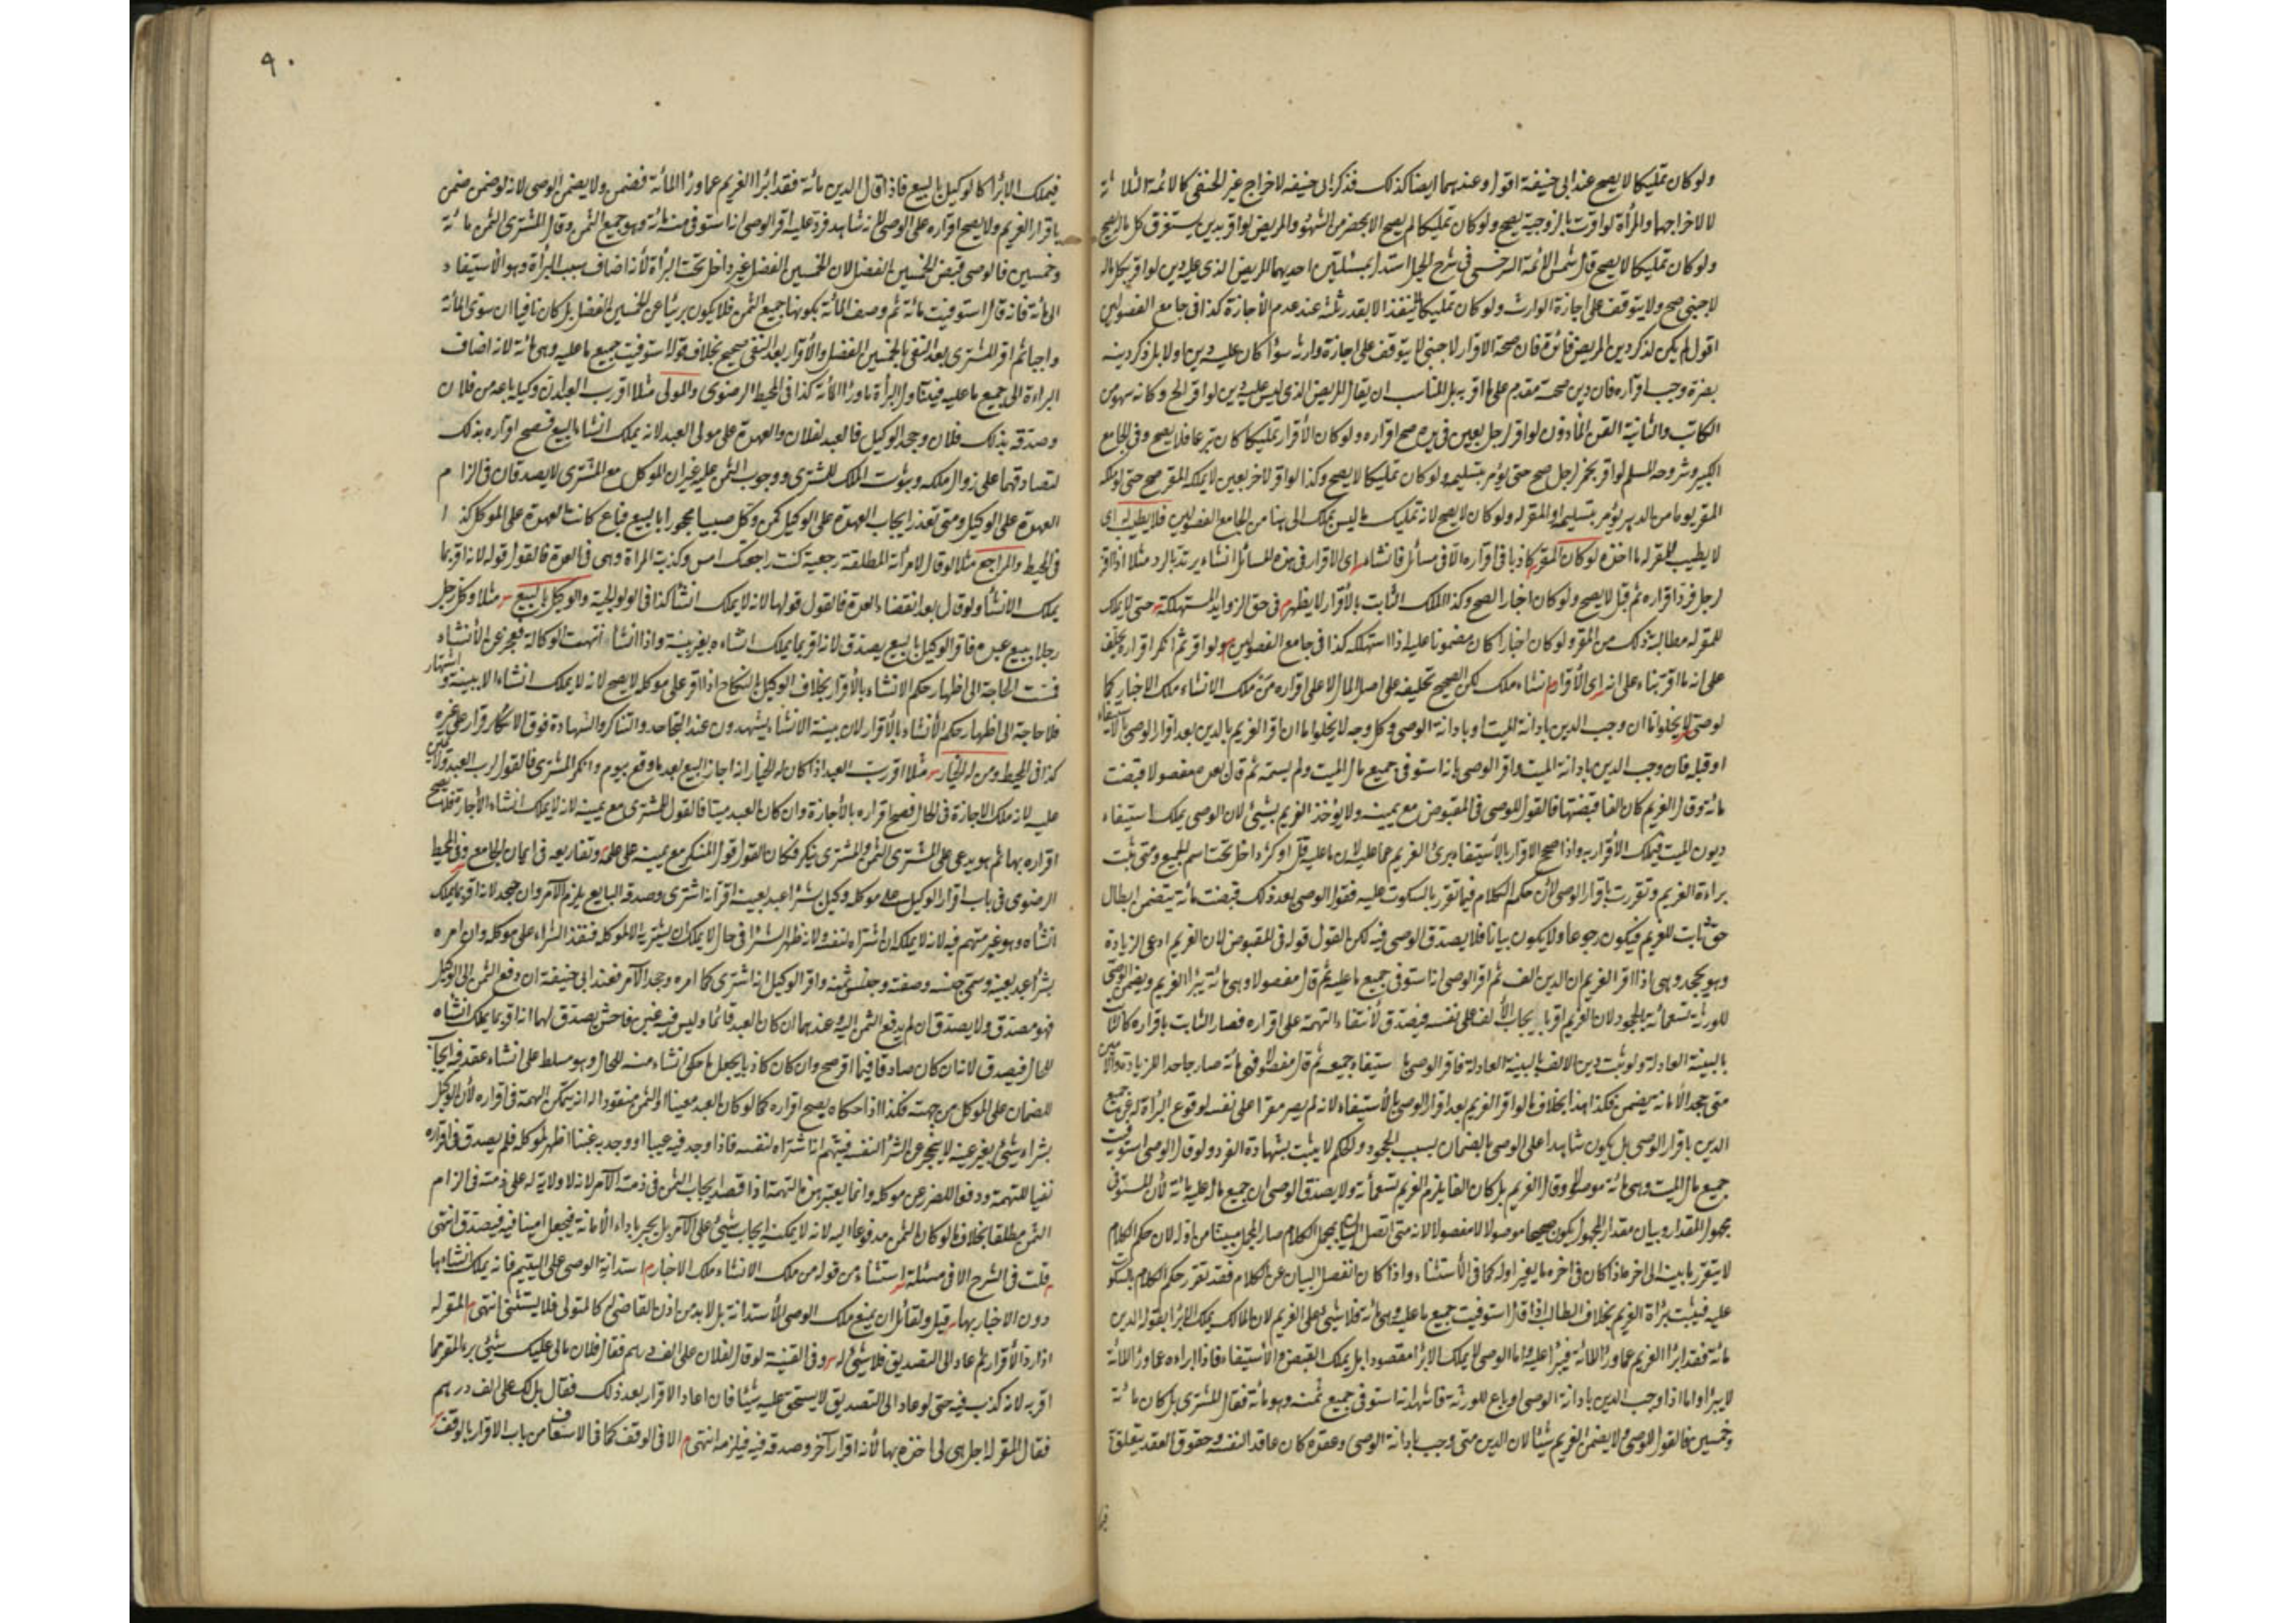 ولو كان تمليكا لا يصح عند ابى حنيفة اقول وعندهما ايضا كذلك فذكر ابى حنيفه لاخراج غير الحنفى كالائمة الثلاثة
لا لاخراجهما والمرأة لو اقرت بالزوجية يصح ولو كان تمليكا لم يصح الا بمحضر من الشهود والمريض لو اقر بدين يستغرق كل ماله يصح
ولو كان تمليكا لا يصح قال شمس الائمة السرخسى فى شرح الحيل استدل بمسئلتين احديهما المريض الذى عليه دين لو اقر بكل ماله
لاجنبى صح ولا يتوقف على اجازة الوارث ولو كان تمليكا لم ينفذ الا بقدر ثلثه عند عدم الاجازة كذا فى جامع الفصولين
اقول لم يكن لذكر دين المريض فائدة فان صحة الاقرار لاجنبى لا يتوقف على اجازة وارثه سواء كان عليه دين او لا بل ذكر دينه
يضره وجب اقراره فان دين صحته مقدم على ما اقر به بل المناسب ان يقال المريض الذى ليس عليه دين لو اقر الخ وكانه سهو من
الكاتب والثانية القن المأذون لو اقر لرجل بعين فى يده صح اقراره ولو كان الاقرار تمليكا كان تبرعا فلا يصح وفى الجامع
الكبير وشروحه المسلم لو اقر بخمر لرجل صح حتى يؤمر بتسليمه ولو كان تمليكا لا يصح وكذا لو اقر لاخر بعين لا يملكه المقر صح حتى لو ملكه
المقر يوما من الدهر يؤمر بتسليمه الى المقر له ولو كان لا يصح لانه تمليك ما ليس بملك الى هنا من الجامع الفصولين فلا يطيب له اى
لا يطيب للمقر له ما اخذه لو كان المقر كاذبا فى اقراره الا فى مسائل فانشاء اى الاقرار فى هذه المسائل انشاء يرتد بالرد مثلا اذا اقر
لرجل فرد اقراره ثم قبل لا يصح ولو كان اخبارا لصح وكذا الملك الثابت بالاقرار لا يظهر فى حق الزوايد المستهلكة حتى لا يملك
للمقر له مطالبة ذلك من المقر ولو كان اخبارا كان مضمونا عليه اذا استهلكه كذا فى جامع الفصولين ولو اقر ثم انكر اقراره يحلف
على انه ما اقر بناء على انه اى الاقرار انشاء ملك لكن الصحيح تحليفه على اصل المال لا على اقراره من ملك الانشاء ملك الاخبار كما
لوصى لا يخلو اما ان وجب الدين بادانة الميت او بادانة الوصى وكل وجه لا يخلو اما ان اقر الغريم بالدين بعد اقرار الوصى بالاستيفاء
او قبله فان وجب الدين بادانة الميت واقر الوصى بانه استوفى جميع مال الميت ولم يسمه ثم قال بعده مفصولا قبضت
مائة وقال الغريم كان الفا قبضتها فالقول للوصى فى المقبوض مع يمينه ولا يؤخذ الغريم بشئ لان الوصى يملك استيفاء
ديون الميت فيملك الاقرار به واذا صح الاقرار بالاستيفاء برئ الغريم عما عليه لان ما عليه قل او كثر داخل تحت اسم الجميع ومتى ثبت
براءة الغريم وتقررت باقرار الوصى لان حكم الكلام فيما تقرر بالسكوت عليه فقول الوصى بعد ذلك قبضت مائة يتضمن ابطال
حق ثابت للغريم فيكون رجوعا ولا يكون بيانا فلا يصدق الوصى فيه لكن القول قوله فى المقبوض لان الغريم ادعى الزيادة
وهو يجحد وهى اذا اقر الغريم ان الدين الف ثم اقر الوصى انه استوفى جميع ما عليه ثم قال مفصولا وهى مائة يبرا الغريم ويضمن الوصى
للورثة تسعمائة بالجحود لان الغريم اقر بايجاب الالف على نفسه فيصدق لانتفاء التهمة على اقراره فصار الثابت باقراره كالثابت
بالبينة العادلة ولو ثبت دين الالف بالبينة العادلة فاقر الوصى باستيفاء جميعه ثم قال مفصولا وهى مائة صار جاحدا للزيادة والامين
متى جحد الامانة يضمن فكذا هذا بخلاف ما لو اقر الغريم بعد اقرار الوصى بالاستيفاء لانه لم يصر مقرا على نفسه لوقوع البراءة له عن جميع
الدين باقرار الوصى بل يكون شاهدا على الوصى بالضمان بسبب الجحود والحكم لا يثبت بشهادة الفرد ولو قال الوصى استوفيت
جميع مال الميت وهى مائة موصولا وقال الغريم بل كان الفا يلزم الغريم تسعمائة ولا يصدق الوصى ان جميع ماله عليه مائة لان المستوفى
مجهول المقدار وبيان مقدار المجهول يكون صحيحا موصولا لا مفصولا لانه متى اتصل البيان بمجمل الكلام صار المجمل مبينا من اوله لان حكم الكلام
لا يتقرر ما بينه الى اخره اذا كان فى اخره ما يغير اوله كما فى الاستثناء واذا كان انفصل البيان عن الكلام فقد تقرر حكم الكلام بالسكوت
عليه فيثبت براءة الغريم بخلاف الطالب اذا قال استوفيت جميع ما عليه وهى مائة فلا شئ على الغريم لان المالك يملك الابراء بقوله الدين
مائة فقد ابرا الغريم عما وراء المائة فيبرأ عليه واما الوصى لا يملك الابراء مقصودا بل يملك القبض والاستيفاء فاذا ابراه عما وراء المائة
لا يبرا واما اذا وجب الدين بادانة الوصى او باع للورثة فاشهد انه استوفى جميع ثمنه وهو مائة فقال المشترى بل كان مائة
وخمسين فالقول للوصى ولا يضمن الغريم شيئا لان الدين متى وجب بادانة الوصى وعقده كان عاقدا لنفسه وحقوق العقد يتعلق به
٩٠
فيملك الابراء كالوكيل بالبيع فاذا قال الدين مائة فقد ابرا الغريم عما وراء المائة فضمن ولا يضمن الوصى لانه لو ضمن ضمن
باقرار الغريم ولا يصح اقراره على الوصى لانه شاهد فرد عليه اقر الوصى انه استوفى منه مائة وهو جميع الثمن وقال المشترى الثمن مائة
وخمسين فالوصى قبض الخمسين الفضل لان الخمسين الفضل غير داخل تحت البرأة لانه اضاف سبب البرأة وهو الاستيفاء
الى مائة فانه قال استوفيت مائة ثم وصف المائة بكونها جميع الثمن فلا يكون بريئا عن الخمسين الفضل بل كان نافيا ان سوى المائة
واجبا ثم اقر المشترى بعد النفى بالخمسين الفضل والاقرار بعد النفى صحيح بخلاف قوله استوفيت جميع ما عليه وهى مائة لانه اضاف
البراءة الى جميع ما عليه فيتناول البرأة ما وراء المائة كذا فى المحيط الرضوى والمولى مثلا اقر رب العبد ان وكيله باعه من فلان
وصدقه بذلك فلان وجحد الوكيل فالعبد لفلان والعهدة على مولى العبد لانه يملك انشاء البيع فصح اقراره بذلك
لتصادقهما على زوال ملكه وثبوت الملك للمشترى ووجوب الثمن عليه غير ان الموكل مع المشترى لا يصدقان فى الزام
العهدة على الوكيل ومتى تعذر ايجاب العهدة على الوكيل كمن وكل صبيا محجورا بالبيع فباع كانت العهدة على الموكل كذا
فى المحيط والمراجع مثلا لو قال لامرأته المطلقة رجعية كنت راجعتك امس وكذبته المراة وهى فى العدة فالقول قوله لانه اقر بما
يملك الانشأ ولو قال بعد انقضاء العدة فالقول قولها لانه لا يملك انشأ كذا فى الولوالجية والوكيل بالبيع مثلا وكل رجل
رجلا ببيع عبده فاقر الوكيل بالبيع يصدق لانه اقر بما يملك انشاءه بغير بينة واذا انشأ انتهت الوكالة فيعجز عن الانشاء
فمست الحاجة الى اظهار حكم الانشاء بالاقرار بخلاف الوكيل بالنكاح اذا اقر على موكله لا يصح لانه لا يملك انشاء الا ببينة واشتهار
فلا حاجة الى اظهار حكم الانشاء بالاقرار لان بينة الانشاء يشهدون عند التجاحد والتناكر والشهادة فوق الانكار قرار على غيره
كذا فى المحيط ومن له الخيار مثلا اقر رب العبد اذا كان له الخيار انه اجاز البيع بعد ما وقع بيوم وانكر المشترى فالقول لرب العبد ولا يمين
عليه لانه ملك الاجازة فى الحال فصح اقراره بالاجازة وان كان العبد ميتا فالقول للمشترى مع يمينه لانه لا يملك انشاء الاجازة فلا يصح
اقراره بها ثم هو يدعى على المشترى الثمن والمشترى ينكر فكان القول قول المنكر مع يمينه على علمه وتفاريعه فى ايمان الجامع وفى المحيط
الرضوى فى باب اقرار الوكيل على موكله وكيل بشراء عبد بعينه اقر انه اشترى وصدقه البايع يلزم الآمر وان جحد لانه اقر بما يملك
انشاه وهو غير متهم فيه لانه لا يملك ان اشتراه لنفسه ولانه ظهر الشراء فى حال لا يملك ان يشتريه الا لموكله فنفذ الشراء على موكله وان امره
بشراء عبد بعينه وسمى جنسه وصفته وجنس ثمنه واقر الوكيل انه اشترى كما امره وجحد الآمر فعند ابى حنيفة ان دفع الثمن الى الوكيل
فهو مصدق ولا يصدق ان لم يدفع الثمن اليه وعندهما ان كان العبد قائما وليس فيه غبن فاحش يصدق لهما انه اقر بما يملك انشاه
للحال فيصدق لانه ان كان صادقا فيما اقر صح وان كان كاذبا يجعل ما حكى انشاء منه للحال وهو مسلط على انشاء عقد فيه ايجاب
للضمان على الموكل من جهته فكذا اذا حكاه يصح اقراره كما لو كان العبد معينا او الثمن منقودا له انه يتمكن التهمة فى اقراره لان الوكيل
بشراء شيئ بغير عينه لا يعجز عن الشراء لنفسه فيتهم انه اشتراه لنفسه فاذا وجد فيه عيبا او وجد به غبنا اظهر لموكله فلم يصدق فى اقراره
نفيا للتهمة ودفعا للضرر عن موكله وانما يعتبر هذه التهمة اذا قصد ايجاب الثمن فى ذمة الآمر لانه لا ولاية له على ذمته فى الزام
الثمن مطلقا بخلاف ما لو كان الثمن مدفوعا اليه لانه لا يمكنه ايجاب شيئ على الآمر بل يخبر باداء الامانة فيجعل امينا فيه فيصدق انتهى
قلت فى الشرح الا فى مسئلة استثناء من قوله من ملك الانشاء ملك الاخبار استدانة الوصى على اليتيم فانه يملك انشاءها
دون الاخبار بها قيل ولقائل ان يمنع ملك الوصى الاستدانة بل لا بد من اذن القاضى له كالمتولى فلا يستثنى انتهى المقر له
اذا رد الاقرار ثم عاد الى التصديق فلا شئ له وفى القنية لو قال لفلان على الف درهم فقال فلان مالى عليك شيئ برء المقر مما
اقر به لانه كذب فيه حتى لو عاد الى التصديق لا يستحق عليه شيئا فان اعاد الاقرار بعد ذلك فقال بل لك على الف درهم
فقال المقر له اجل هى لى اخذه بها لانه اقرار آخر وصدقه فيه فيلزمه انتهى الا فى الوقف كما فى الاسعاف من باب الاقرار بالوقف